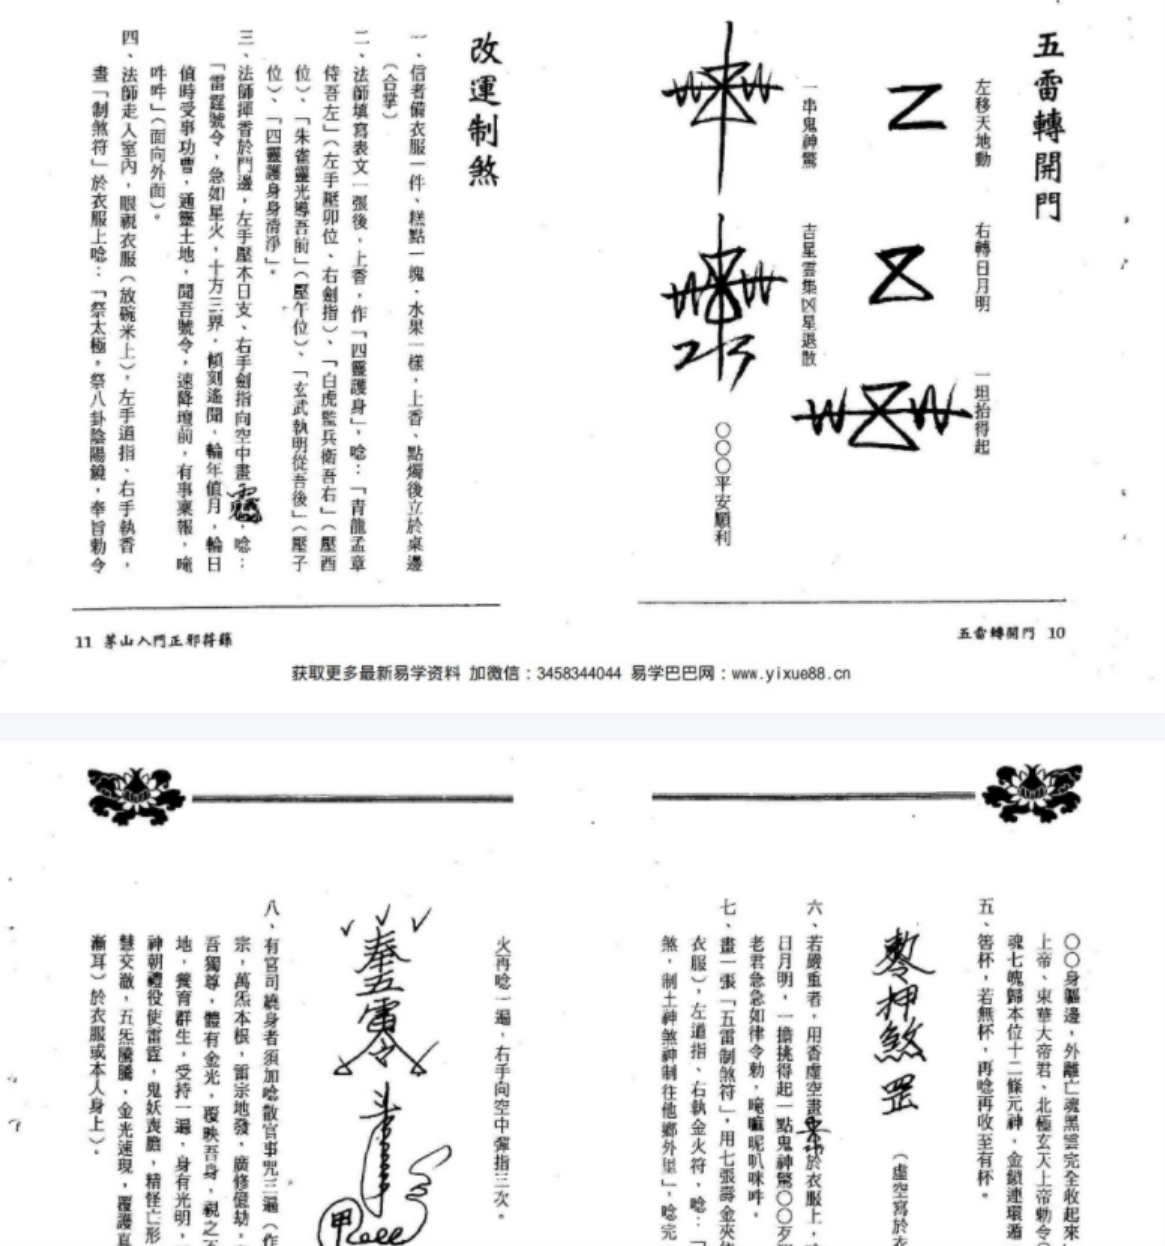 五雷轉開門
左移天地動
右轉日月明
一坦抬得起
一串鬼神驚
吉星雲集凶星退散
〇〇〇平安順利
五雷轉開門 10
改運制煞
一、信者備衣服一件、糕點一塊、水果一樣，上香、點燭後立於桌邊
（合掌）
二、法師填寫表文一張後，上香，作「四靈護身」，唸：「青龍孟章
侍吾左」（左手壓卯位、右劍指）、「白虎監兵衛吾右」（壓酉
位）、「朱雀靈光導吾前」（壓午位）、「玄武執明從吾後」（壓子
位）、「四靈護身身清淨」。
三、法師揮香於門邊，左手壓本日支、右手劍指向空中畫，唸：
「雷霆號令，急如星火，十方三界，傾刻遙聞，輪年值月，輪日
值時受事功曹，通靈土地，聞吾號令，速降壇前，有事稟報，唵
吽吽」（面向外面）。
四、法師走入室內，眼視衣服（放碗米上），左手道指、右手執香，
畫「制煞符」於衣服上唸：「祭太極，祭八卦陰陽鏡，奉旨勅令
11 茅山入門正邪符籙
获取更多最新易学资料 加微信：3458344044 易学巴巴网：www.yixue88.cn
〇〇身軀邊，外離亡魂黑雲完全收起來
上帝、東華大帝君、北極玄天上帝勅令
魂七魄歸本位十二條元神，金鎖連環遁
五、筶杯，若無杯，再唸再收至有杯。
押煞罡
（虛空寫於衣
六、若嚴重者，用香虛空畫於衣服上，
日月明，一擔挑得起一點鬼神驚〇〇歹
老君急急如律令勅，唵嘛呢叭咪吽。
七、畫一張「五雷制煞符」，用七張壽金夾
衣服），左道指、右執金火符，唸：「
煞，制土神煞神制往他鄉外里」，唸完
火再唸一遍，右手向空中彈指三次。
奉五雷令
甲
八、有官司繞身者須加唸散官事咒三遍（作
宗，萬炁本根，雷宗地發，廣修億劫，
吾獨尊，體有金光，覆映吾身，視之不
地，養育群生，受持一遍，身有光明，
神朝禮役使雷霆，鬼妖喪膽，精怪亡形
慧交澈，五炁騰騰，金光速現，覆護真
漸耳）於衣服或本人身上）。